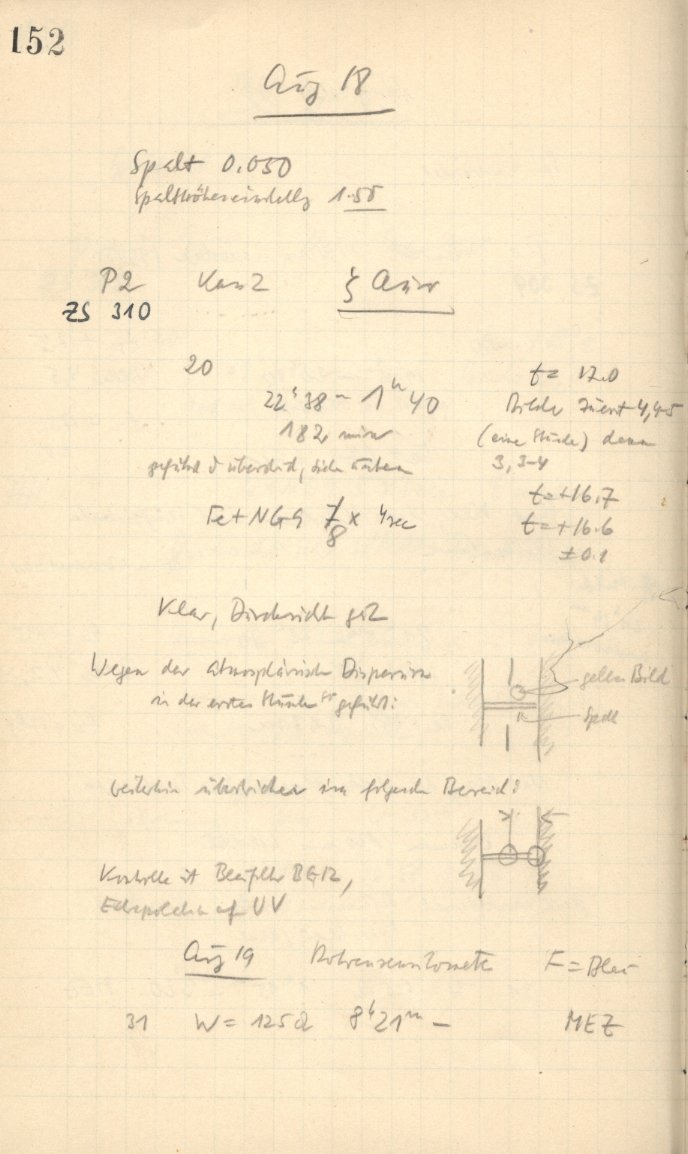 152
Aug 18
Spalt 0.050
Spalthöheneinstellg 1.55
P2 Kam 2 ζ Aur
ZS 310
20
22h 38 – 1h 40
182 min
geführt
t = 17.0
Bilder zuerst 4,4-5
(eine Stunde) dann
3, 3-4
t=+16.7
t=+16.6
±0.1
Fe + NG9 7/8 x 4sec
Klar, Durchsicht gut
Wegen der atmosphärischen Dispersion
in der ersten Stunde so geführt:
gelbes Bild
Spalt
weiterhin im folgenden Bereich:
Kontrolle mit Blaufilter BG12,
Extrapolation auf UV
Aug 19 Röhrensensitometer F = Blau
31 W = 125Ω 8h21m – MEZ